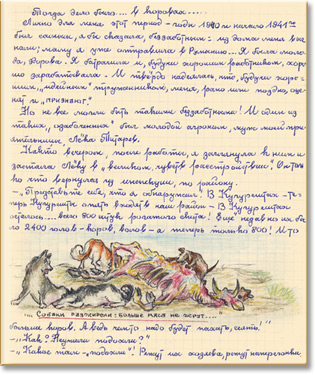 Тогда дело было.... в вопросах...
Лично для меня этот период - годы 1940 и начало 1941го
был самым, я бы сказала, беззаботным: из дома меня вы-
гнали; маму я уже отправила в Румынию... Я была моло-
да, здорова. Я батрачила и, будучи хорошим работником, хоро-
шо зарабатывала. И твёрдо надеялась, что, будучи хоро-
шим, "идейным" тружеником, меня, рано или поздно, оце-
нят и "признают".
Но не все могли быть такими беззаботными! И одним из
таких, "озабоченных" был молодой агроном, муж моей при-
ятельницы, Лёва Титарев.
Как-то вечером, после работы, я заглянула к ним и
застала Лёву в "великом, чувств расстройстве". Он толь-
ко что вернулся из инспекции, по району.
-"Представьте себе, что я обнаружил! В Кугурештах - те-
перь Кугурешты опять входят в наш район - В Кугурештах
осталось.... всего 800 штук рогатого скота! Ещё недавно их бы-
ло 2400 голов - коров, волов - а теперь только 800! И то
... Собаки разжирели: больше мяса не жрут....
больше коров. А ведь чем-то надо будет пахать, сеять!"
-"Как? Неужели подохли?"
-"Какое там - "подохли"! Режут их хозяева, режут наперегонки